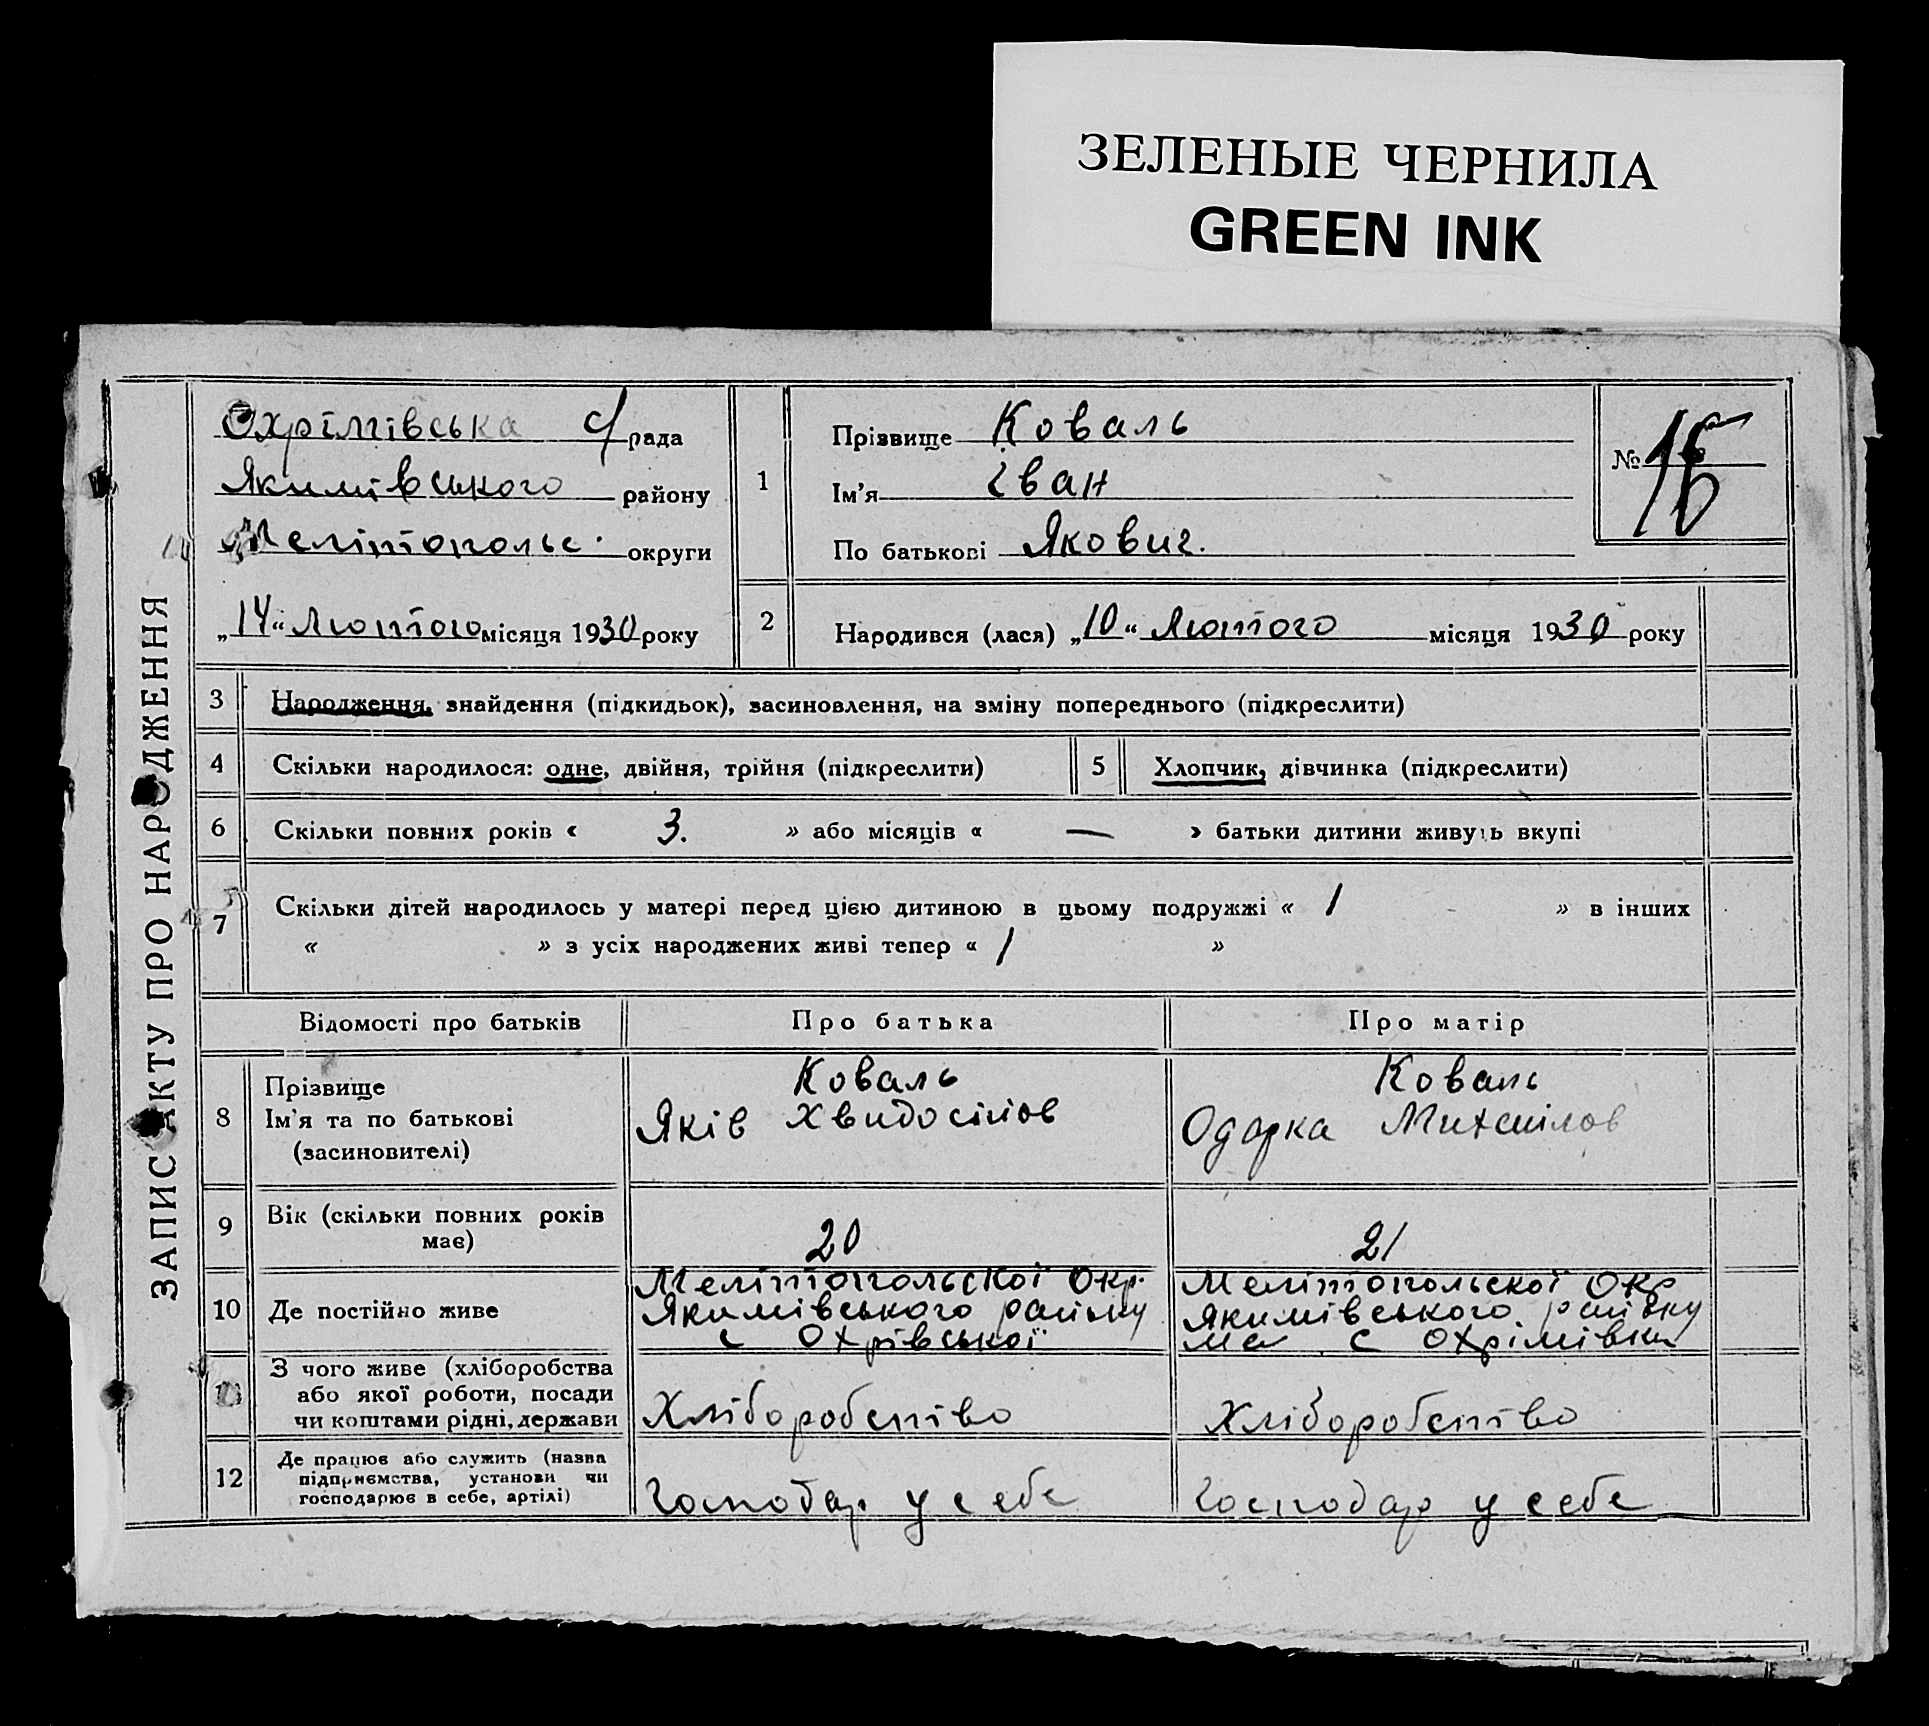 ЗЕЛЕНЫЕ ЧЕРНИЛА
GREEN INK
ЗАПИС АКТУ ПРО НАРОДЖЕННЯ
Охрімівська с/рада
Якимівського району
Мелітопольс. округи
„14“ лютого місяця 1930 року
1
Прізвище Коваль
Ім'я Іван
По батькові Якович.
№ 16
2
Народився (лася) „10“ лютого місяця 1930 року
3 Народження, знайдення (підкидьок), засиновлення, на зміну попереднього (підкреслити)
4 Скільки народилося: одне, двійня, трійня (підкреслити)
5 Хлопчик, дівчинка (підкреслити)
6 Скільки повних років « 3. » або місяців « — » батьки дитини живуть вкупі
7 Скільки дітей народилось у матері перед цією дитиною в цьому подружжі « 1 » в інших
« » з усіх народжених живі тепер « 1 »
Відомості про батьків Про батька Про матір
8 Прізвище
Ім'я та по батькові
(засиновителі)
Коваль
Яків Хвидосійов
Коваль
Одарка Михайлов
9 Вік (скільки повних років
має)
20
21
10 Де постійно живе
Мелітопольскої Окр.
Якимівського району
с Охрівської
Мелітопольскої Окр
Якимівського району
с Охрімівка
11 З чого живе (хліборобства
або якої роботи, посади
чи коштами рідні, держави
Хліборобство
Хліборобство
12 Де працює або служить (назва
підприємства, установи чи
господарює в себе, артілі)
Господар у себе
Господар у себе